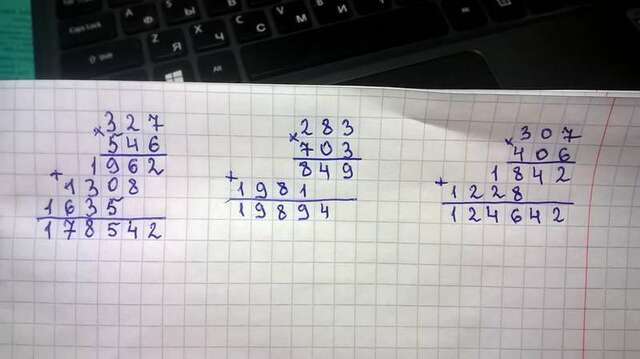 Caps Lock
Shift
Z Я
Ч
С
М
И
Alt
× 327
546
+ 1962
1308
1635
178542
× 283
703
+ 849
1981
19894
× 307
406
+ 1842
1228
124642